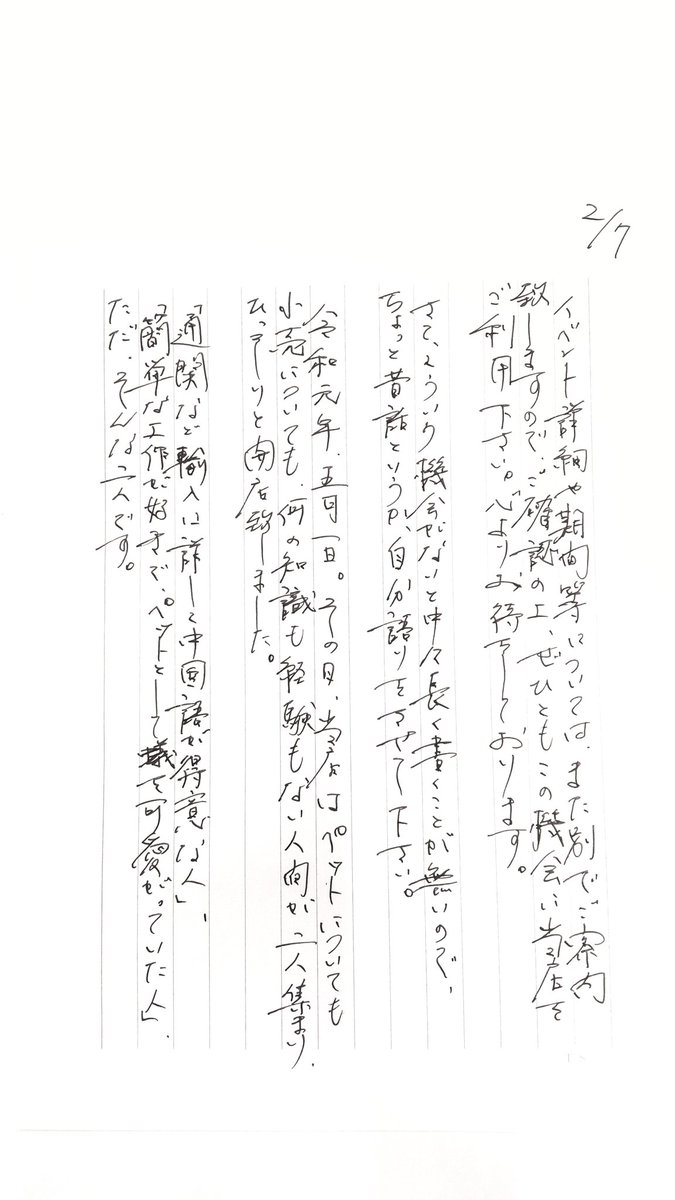 2/7
イベント詳細や期間等については、また別でご案内
致しますので、ご確認の上、ぜひともこの機会に当店を
ご利用下さい。心よりお待ちしております。
さて、こういう機会がないと中々長く書くことが無いので、
ちょっと昔話というか、自分語りをさせて下さい。
令和元年、五月一日。その日、当店はペットについても
小売についても、何の知識も経験もない人間が二人集まり、
ひっそりと開店致しました。
「通関など輸入に詳しく中国語が得意な人」、
「簡単な工作が好きで、ペットとして蟻を可愛がっていた人」、
ただ、そんな二人です。